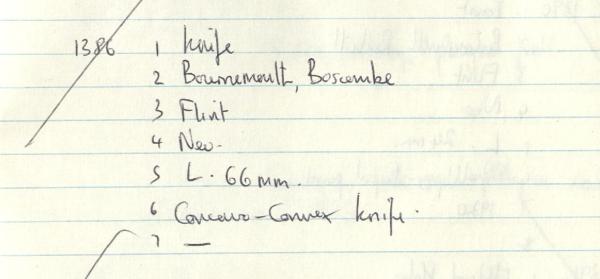 1386 1 Knife
2 Bournemoult, Boscombe
3 Flint
4 Neo.
5 L. 66 mm.
6 Concavo-Convex knife.
7 —